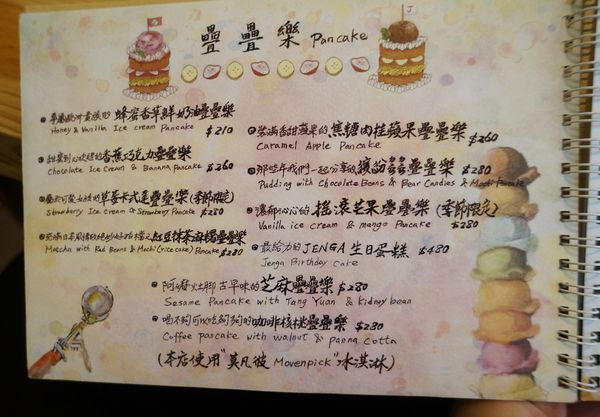 疊疊樂 Pancake
J
蜂蜜香草鮮奶油疊疊樂
Honey & Vanilla Ice cream Pancake $210
香蕉巧克力疊疊樂
Chocolate Ice Cream & Banana Pancake $260
草莓卡式達疊疊樂(季節限定)
Strawberry Ice Cream & Strawberry Pancake $280
紅豆抹茶麻糬疊疊樂
Matcha with Red Beans & Mochi (rice cake) Pancake $280
裝滿香甜蘋果的焦糖肉桂蘋果疊疊樂 $260
Caramel Apple Pancake
那些年我們一起分享的繽紛多多疊疊樂 $280
Pudding with Chocolate Beans & Bear Candies & Mochi Pancake
濃郁 心的搖滾芒果疊疊樂 (季節限定)
Vanilla ice cream & mango Pancake $280
最給力的JENGA生日蛋糕 $480
Jenga Birthday Cake
阿嬤灶腳古早味的芝麻疊疊樂 $280
Sesame Pancake with Tang Yuan & kidney bean
喝不夠可以吃 夠的咖啡核桃疊疊樂 $280
Coffee pancake with walnut & panna cotta
(本店使用"莫凡彼Movenpick"冰淇淋)